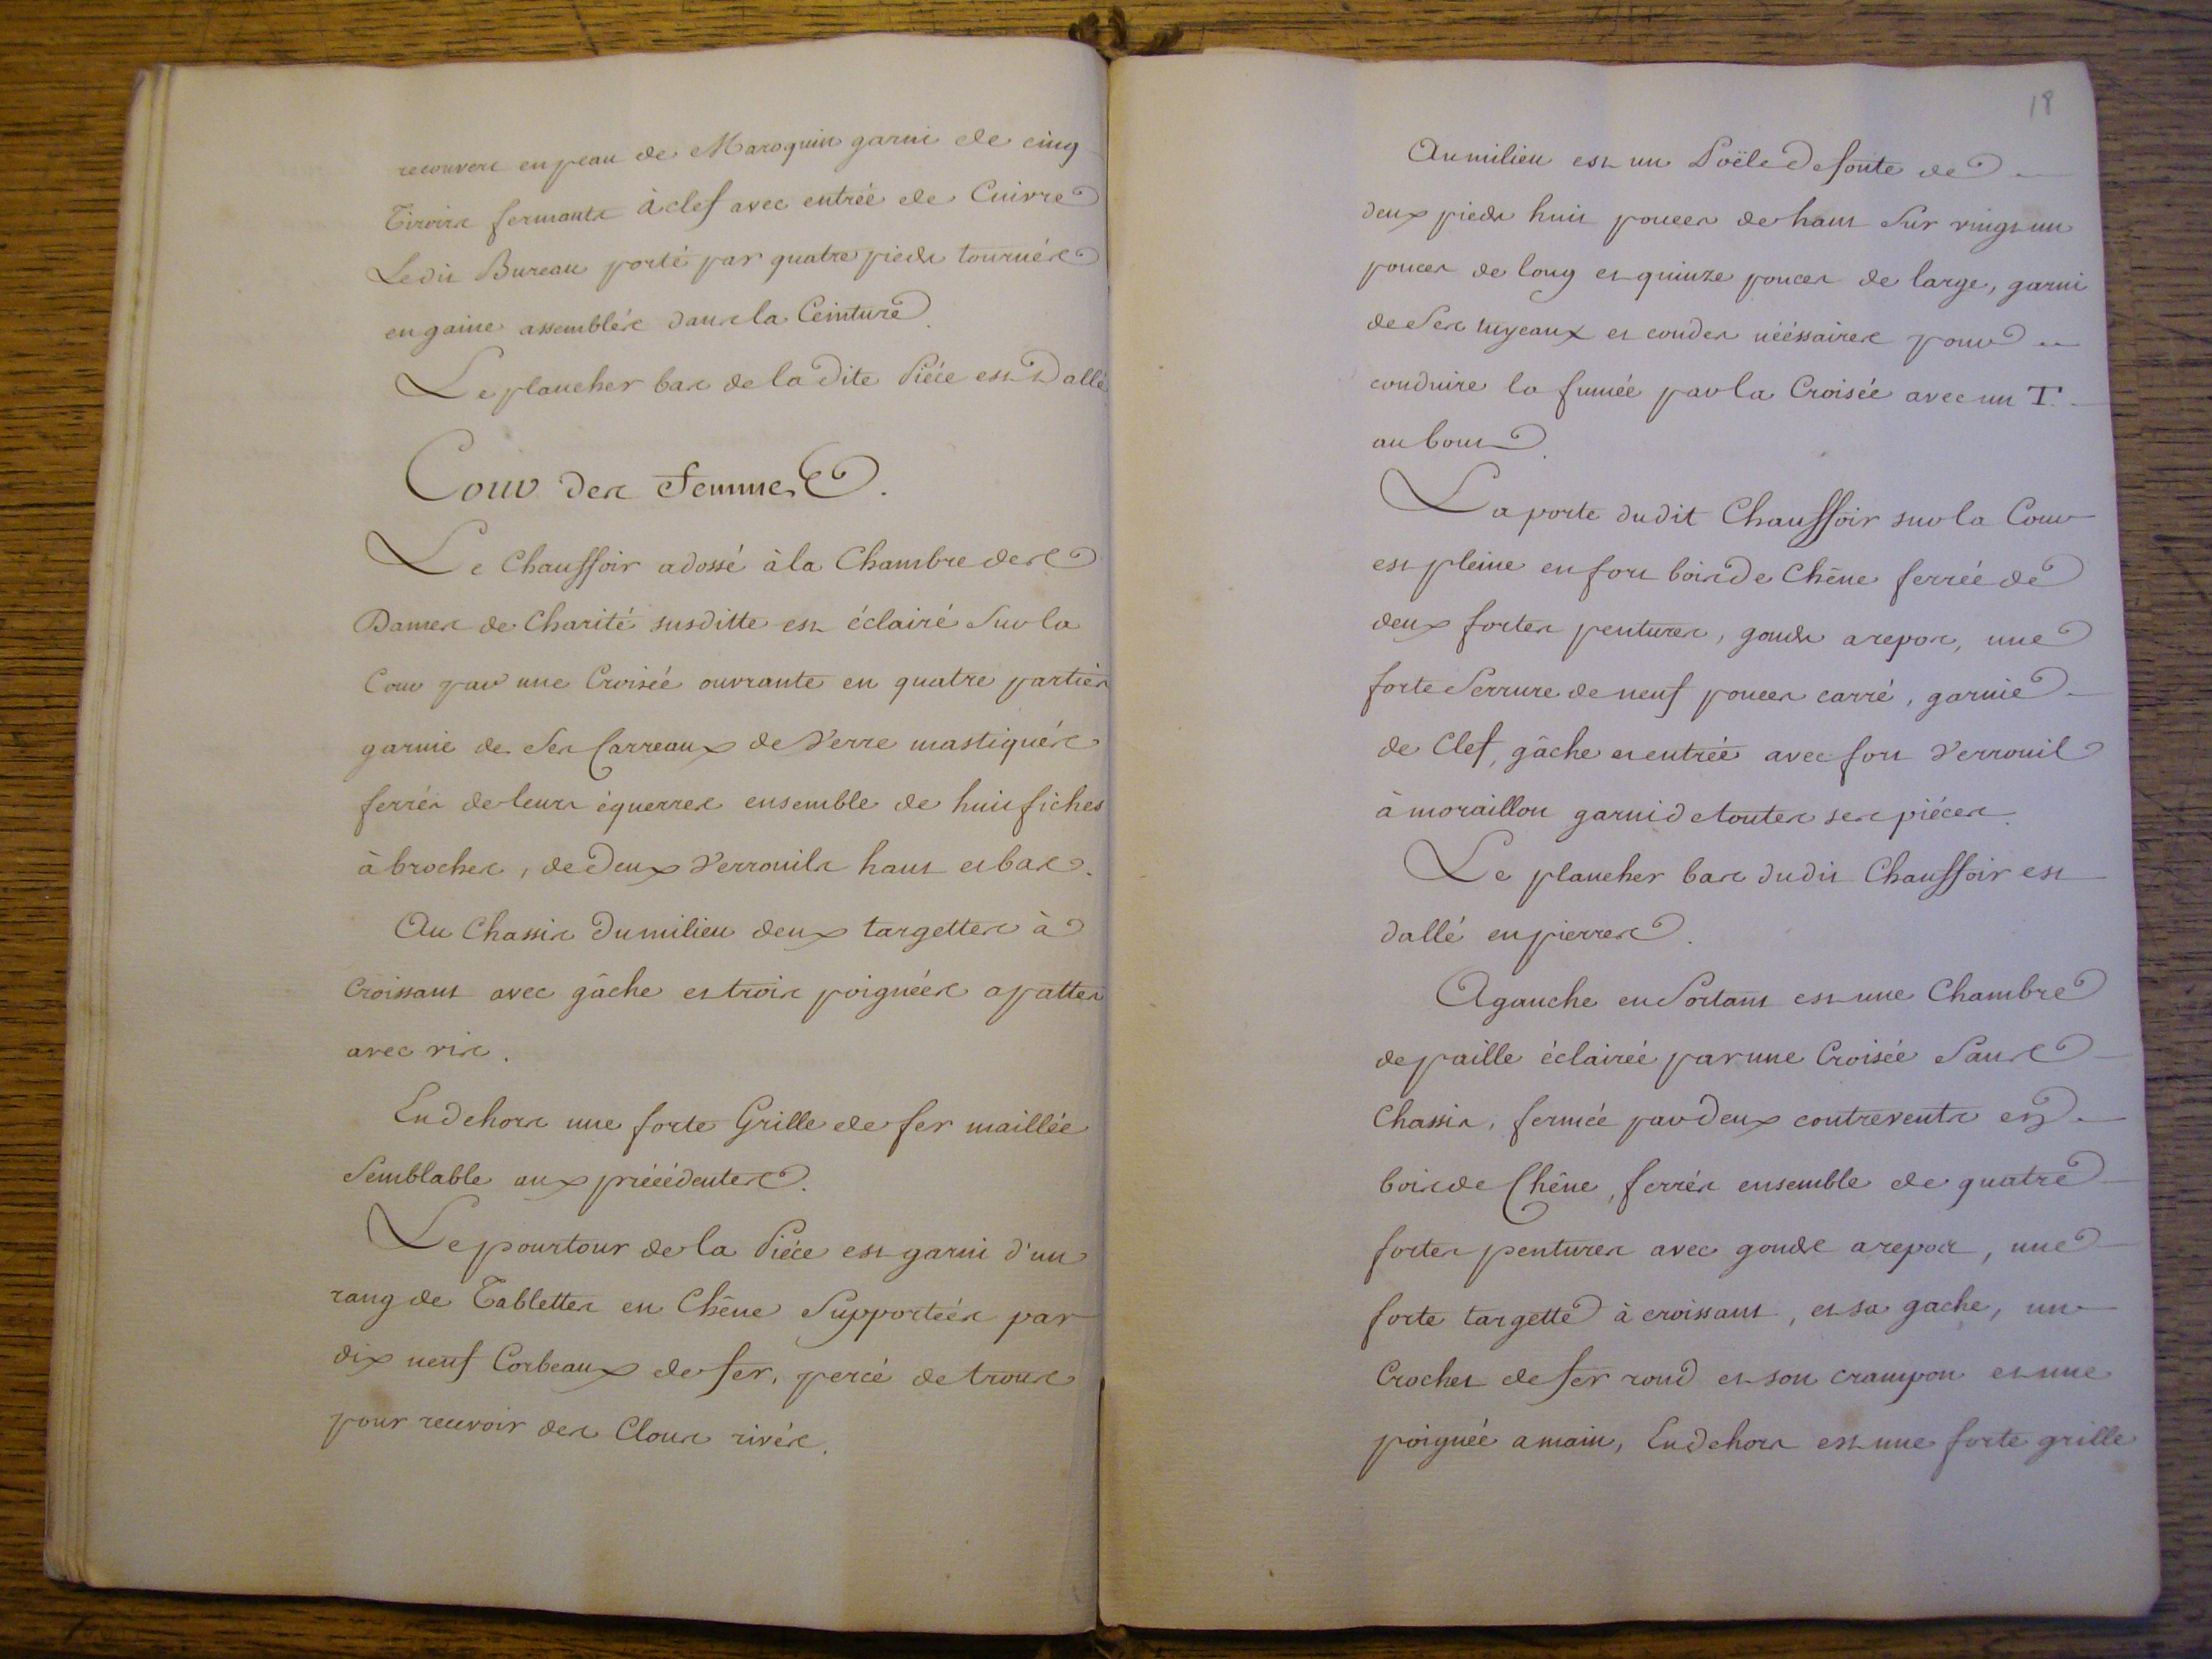 recouvert en peau de Maroquin garni de cinq
Tiroirs fermants à clef avec entrée de Cuivre
Ledit Bureau porté par quatre pieds tournés
en gaine assemblés dans la Ceinture.
Le plancher bas de la dite Piéce est Dallé
Cour des Femmes.
Le Chauffoir adossé à la Chambre des
Dames de Charité susditte est éclairé Sur la
Cour par une Croisée ouvrante en quatre parties
garnie de Ses Carreaux de Verre mastiqués
ferrés de leurs équerres ensemble de huit fiches
à broches, de Deux Verrouils haut et bas.
Au Chassis du milieu deux targettes à
Croissant avec gâche et trois poignées a pattes
avec vis.
En dehors une forte Grille de fer maillée
Semblable aux précédentes.
Le pourtour de la Piéce est garni d'un
rang de Tablettes en Chêne Supportées par
dix neuf Corbeaux de fer, percé de trous
pour recevoir des Clous rivés.
18
Au milieu est un Poële De fonte de
deux pieds huit pouces de haut Sur vingt un
pouces de long et quinze pouces de large, garni
de Ses tuyeaux et coudes nécéssaires pour
conduire la fumée par la Croisée avec un T.
au bout.
La porte du dit Chauffoir sur la Cour
est pleine en fort bois de Chêne ferrée de
deux fortes pentures, gonds a repos, une
forte Serrure de neuf pouces carré, garnie
de Clef, gâche et entrée avec fort Verrouil
à moraillon garni de toutes ses piéces.
Le plancher bas dudit Chauffoir est
dallé en pierres.
A gauche en Sortant est une Chambre
de paille éclairée par une Croisée Sans
Chassis, fermée par deux contrevents en
bois de Chêne, ferrés ensemble de quatre
fortes pentures avec gonds a repos, une
forte targette à croissant, et sa gache, un
Crochet de fer rond et son crampon et une
poignée a main, En dehors est une forte grille